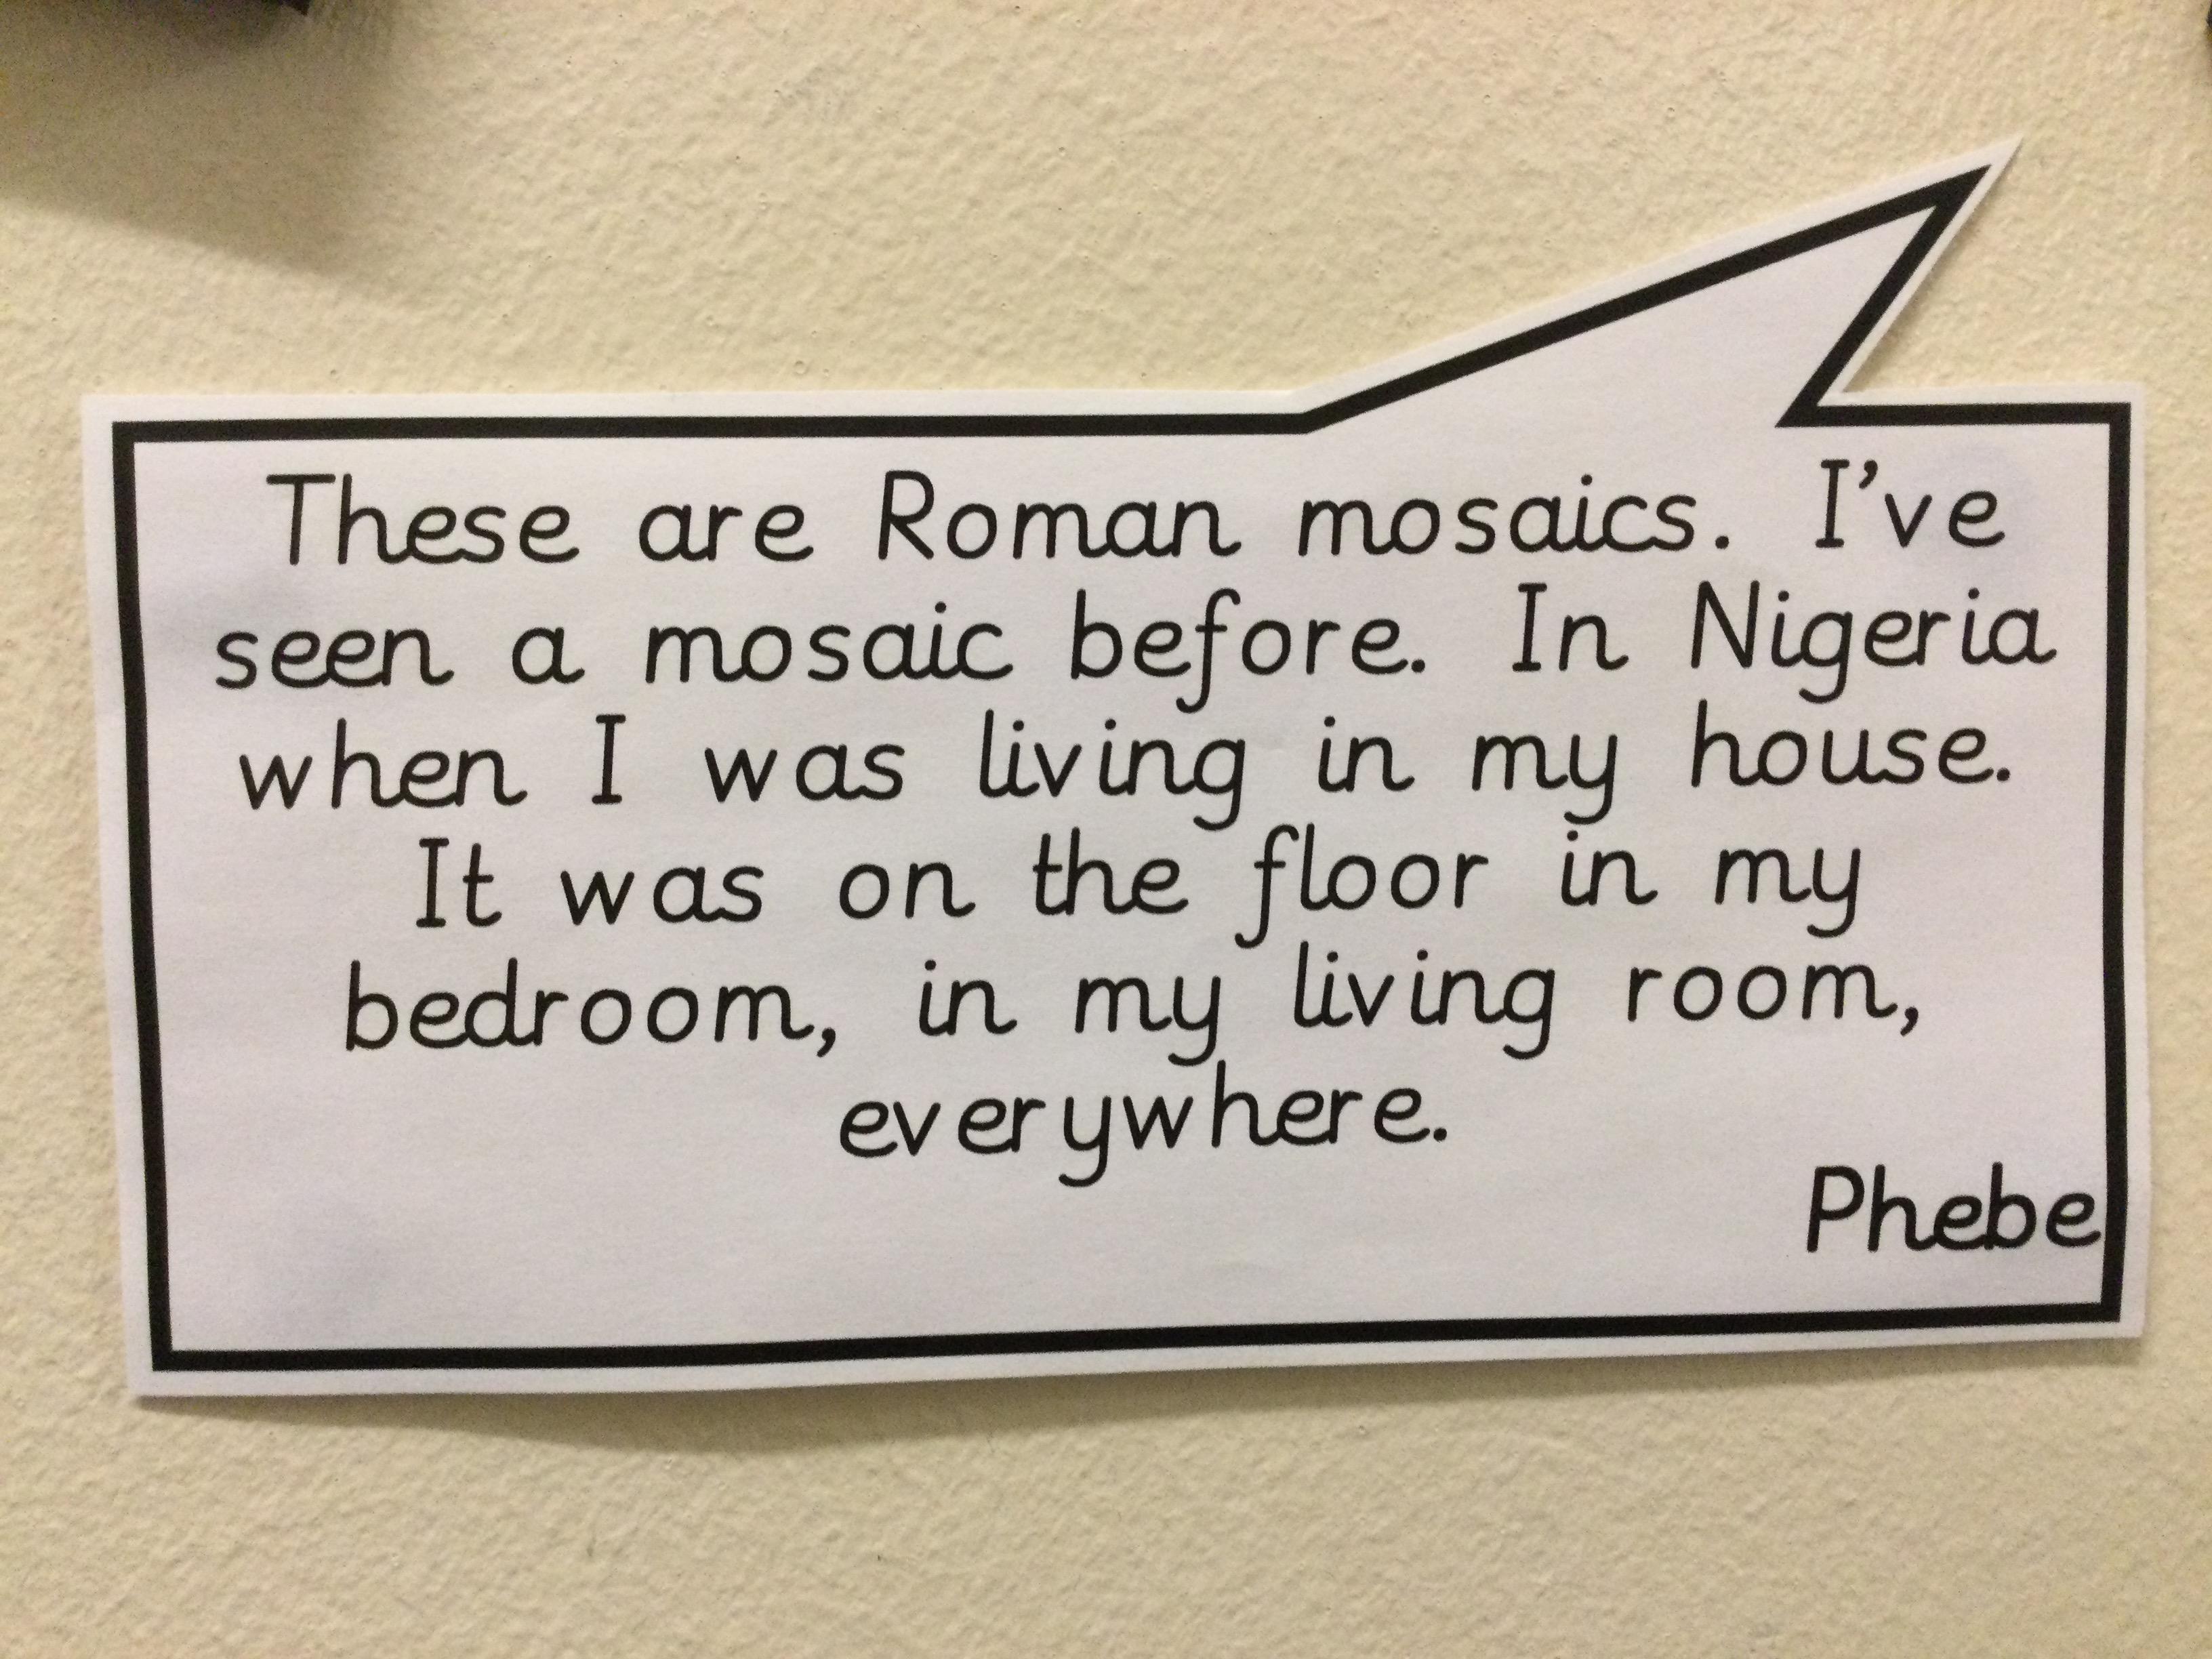 These are Roman mosaics. I've
seen a mosaic before. In Nigeria
when I was living in my house.
It was on the floor in my
bedroom, in my living room,
everywhere.
Phebe